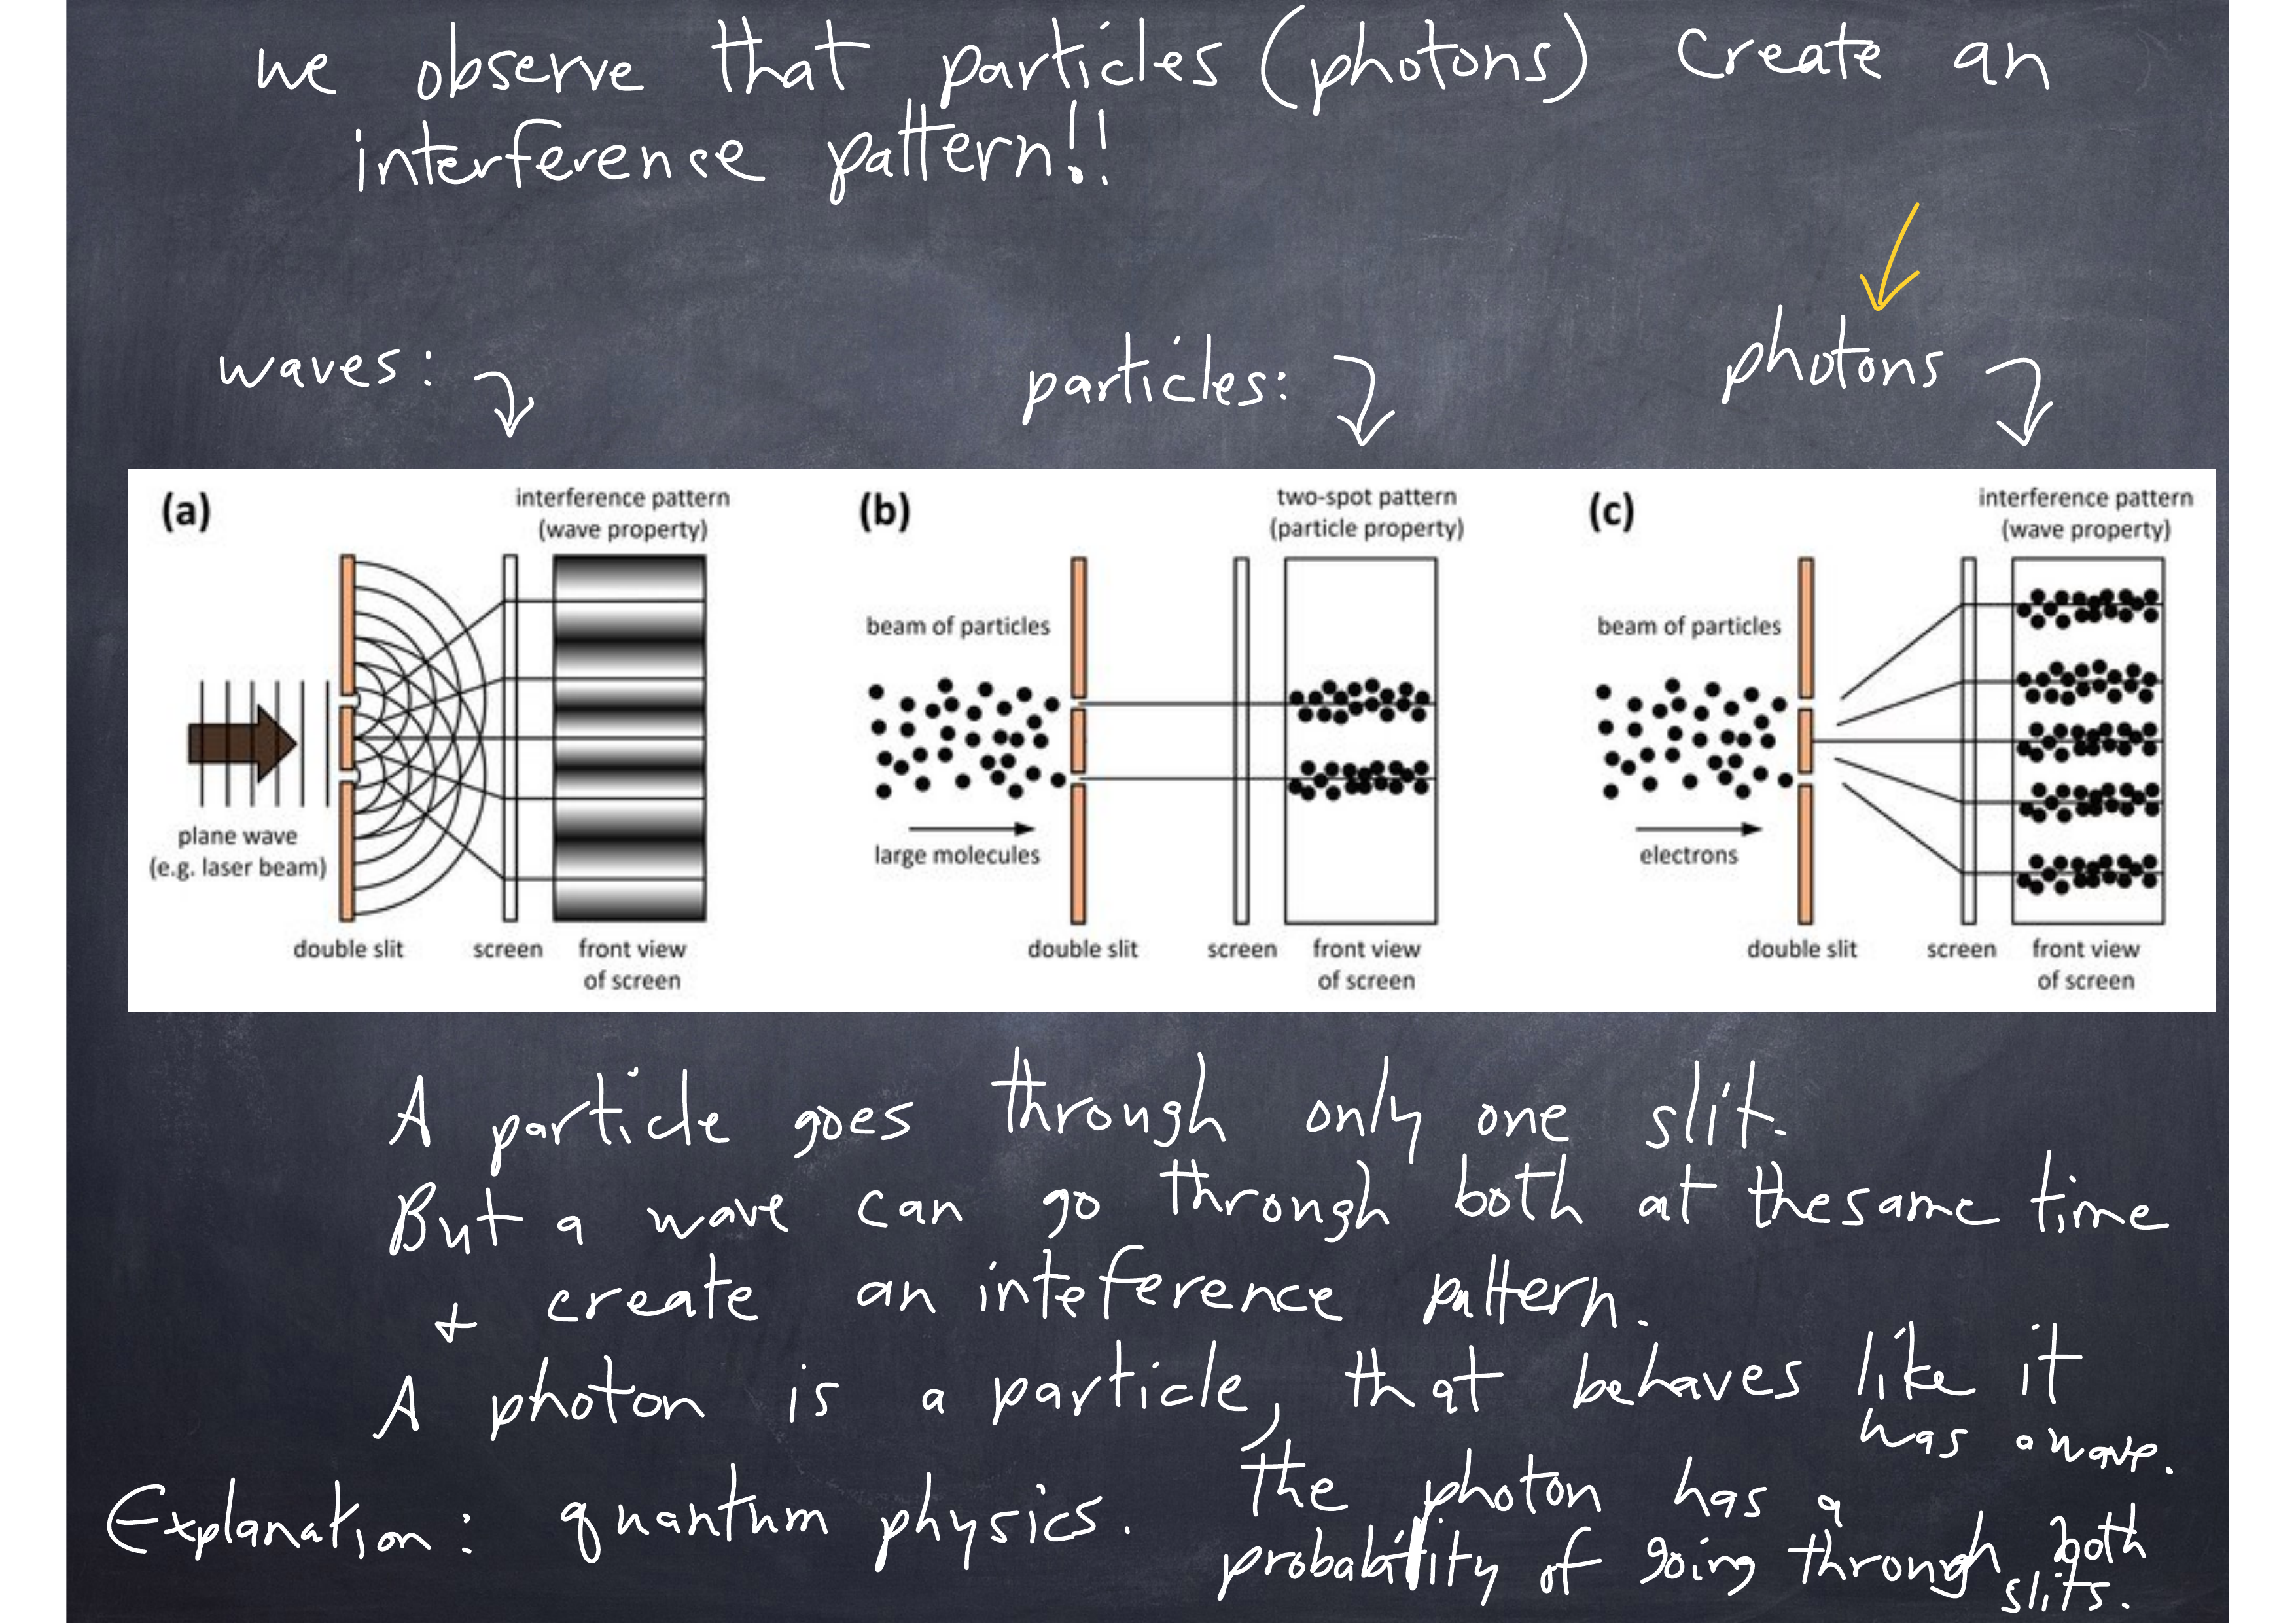 we observe that particles (photons) create an
interference pattern!!
waves:
particles:
photons
(a)
interference pattern
(wave property)
plane wave
(e.g. laser beam)
double slit
screen
front view
of screen
(b)
two-spot pattern
(particle property)
beam of particles
large molecules
double slit
screen
front view
of screen
(c)
interference pattern
(wave property)
beam of particles
electrons
double slit
screen
front view
of screen
A particle goes through only one slit.
But a wave can go through both at thesame time
+ create an inteference pattern.
A photon is a particle, that behaves like it
has a wave.
Explanation: quantum physics. The photon has a
probability of going through both
slits.